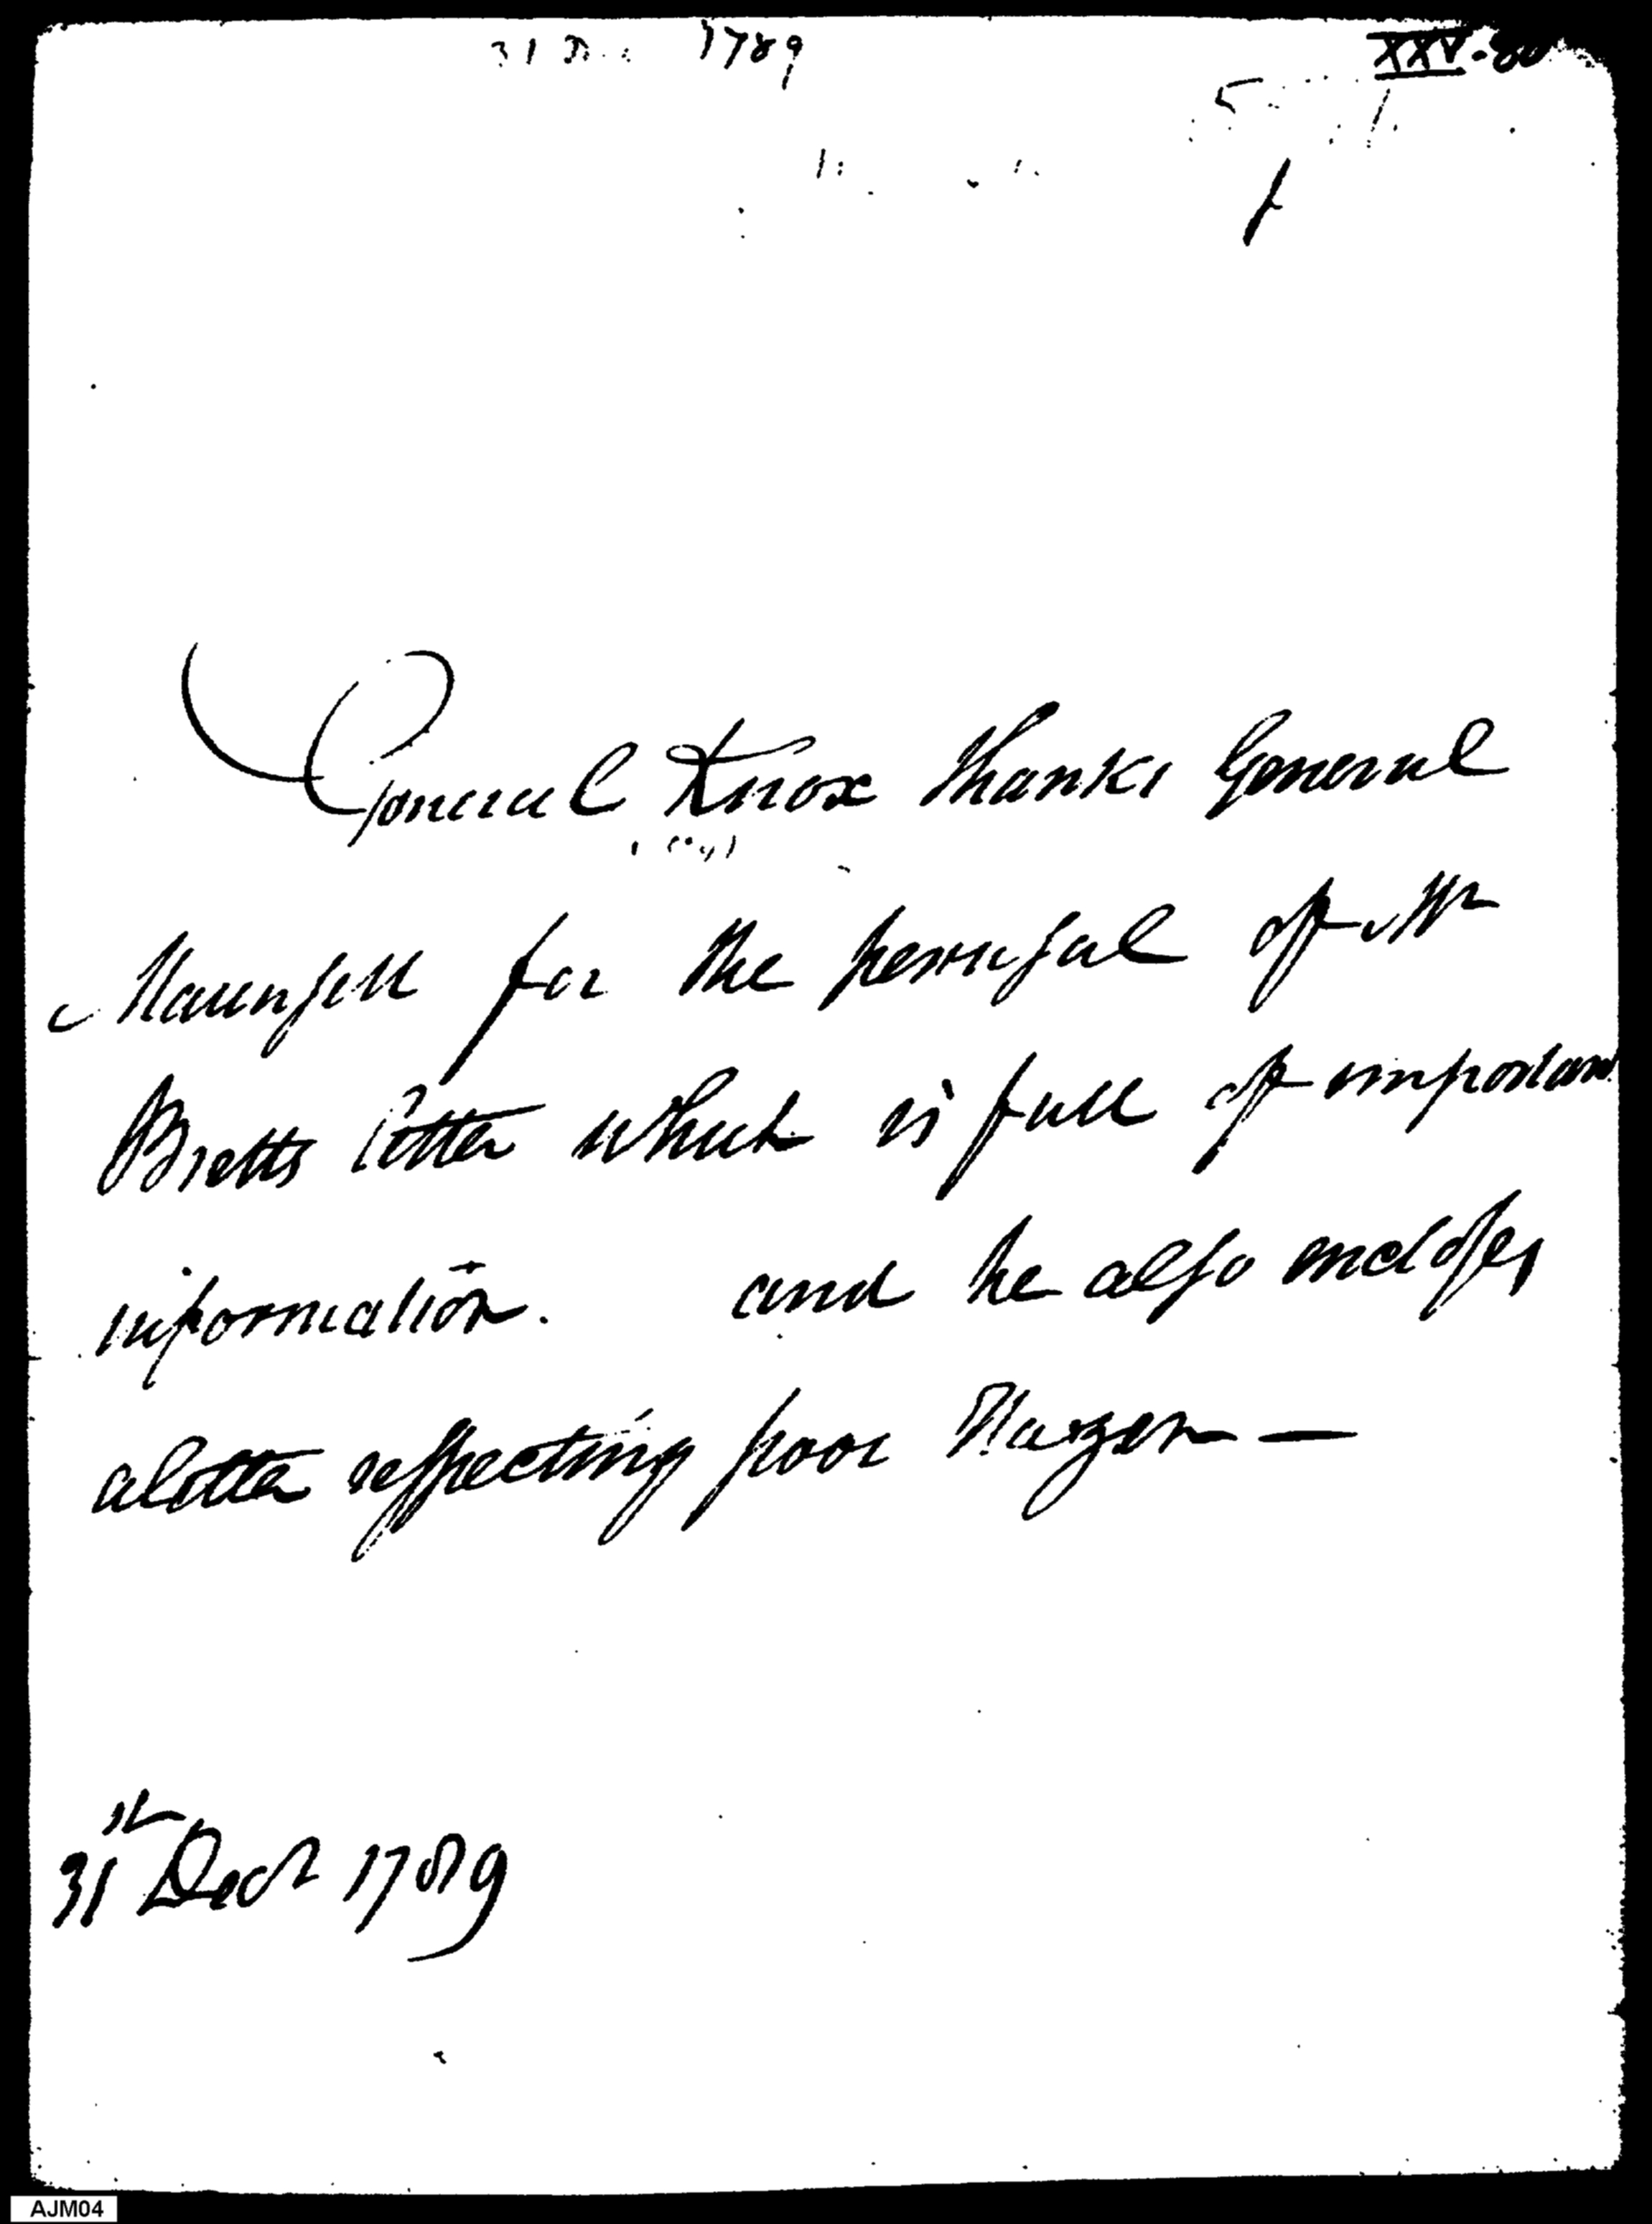 31 Dec 1789
XXV-80
General Knox thanks General
Maunsell for the perusal of Mr
Bretts letter which is full of important
information. and he also encloses
a letter respecting poor
31st Decr 1789
AJM04